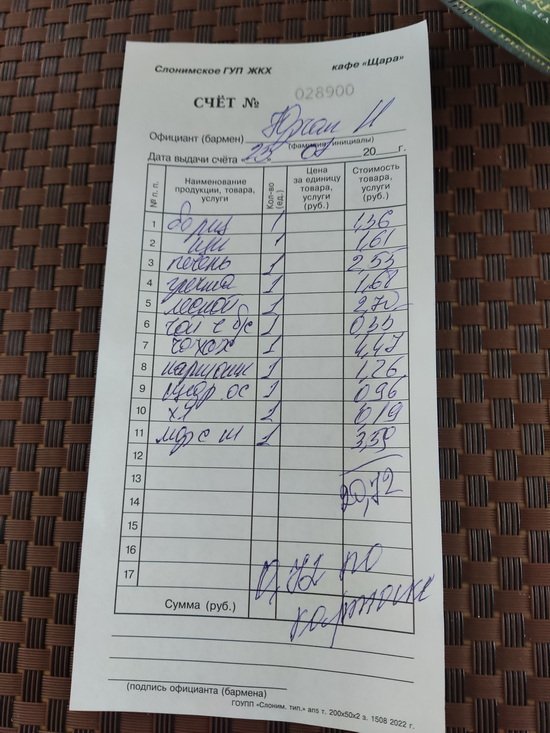 Слонимское ГУП ЖКХ кафе «Щара»
СЧЁТ № 028900
Официант (бармен)
(фамилия, инициалы)
Дата выдачи счёта 23. 20 г.
№ п. п. Наименование продукции, товара, услуги Кол-во (ед.) Цена за единицу товара, услуги (руб.) Стоимость товара, услуги (руб.)
1 борщ 1 1,36
2 щи 1 1,61
3 печень 1 2,55
4 гречка 1 1,68
5 лесной 1 2,70
6 чай с б/с 1
7 1 4,47
8 1 1,26
9 1 0,96
10 хл 2 0,19
11 1 3,50
12
13 20,72
14
15
16
17 0,72 по
Сумма (руб.) карточке
(подпись официанта (бармена)
ГОУПП «Слоним. тип.» ans т. 200х50х2 з. 1508 2022 г.